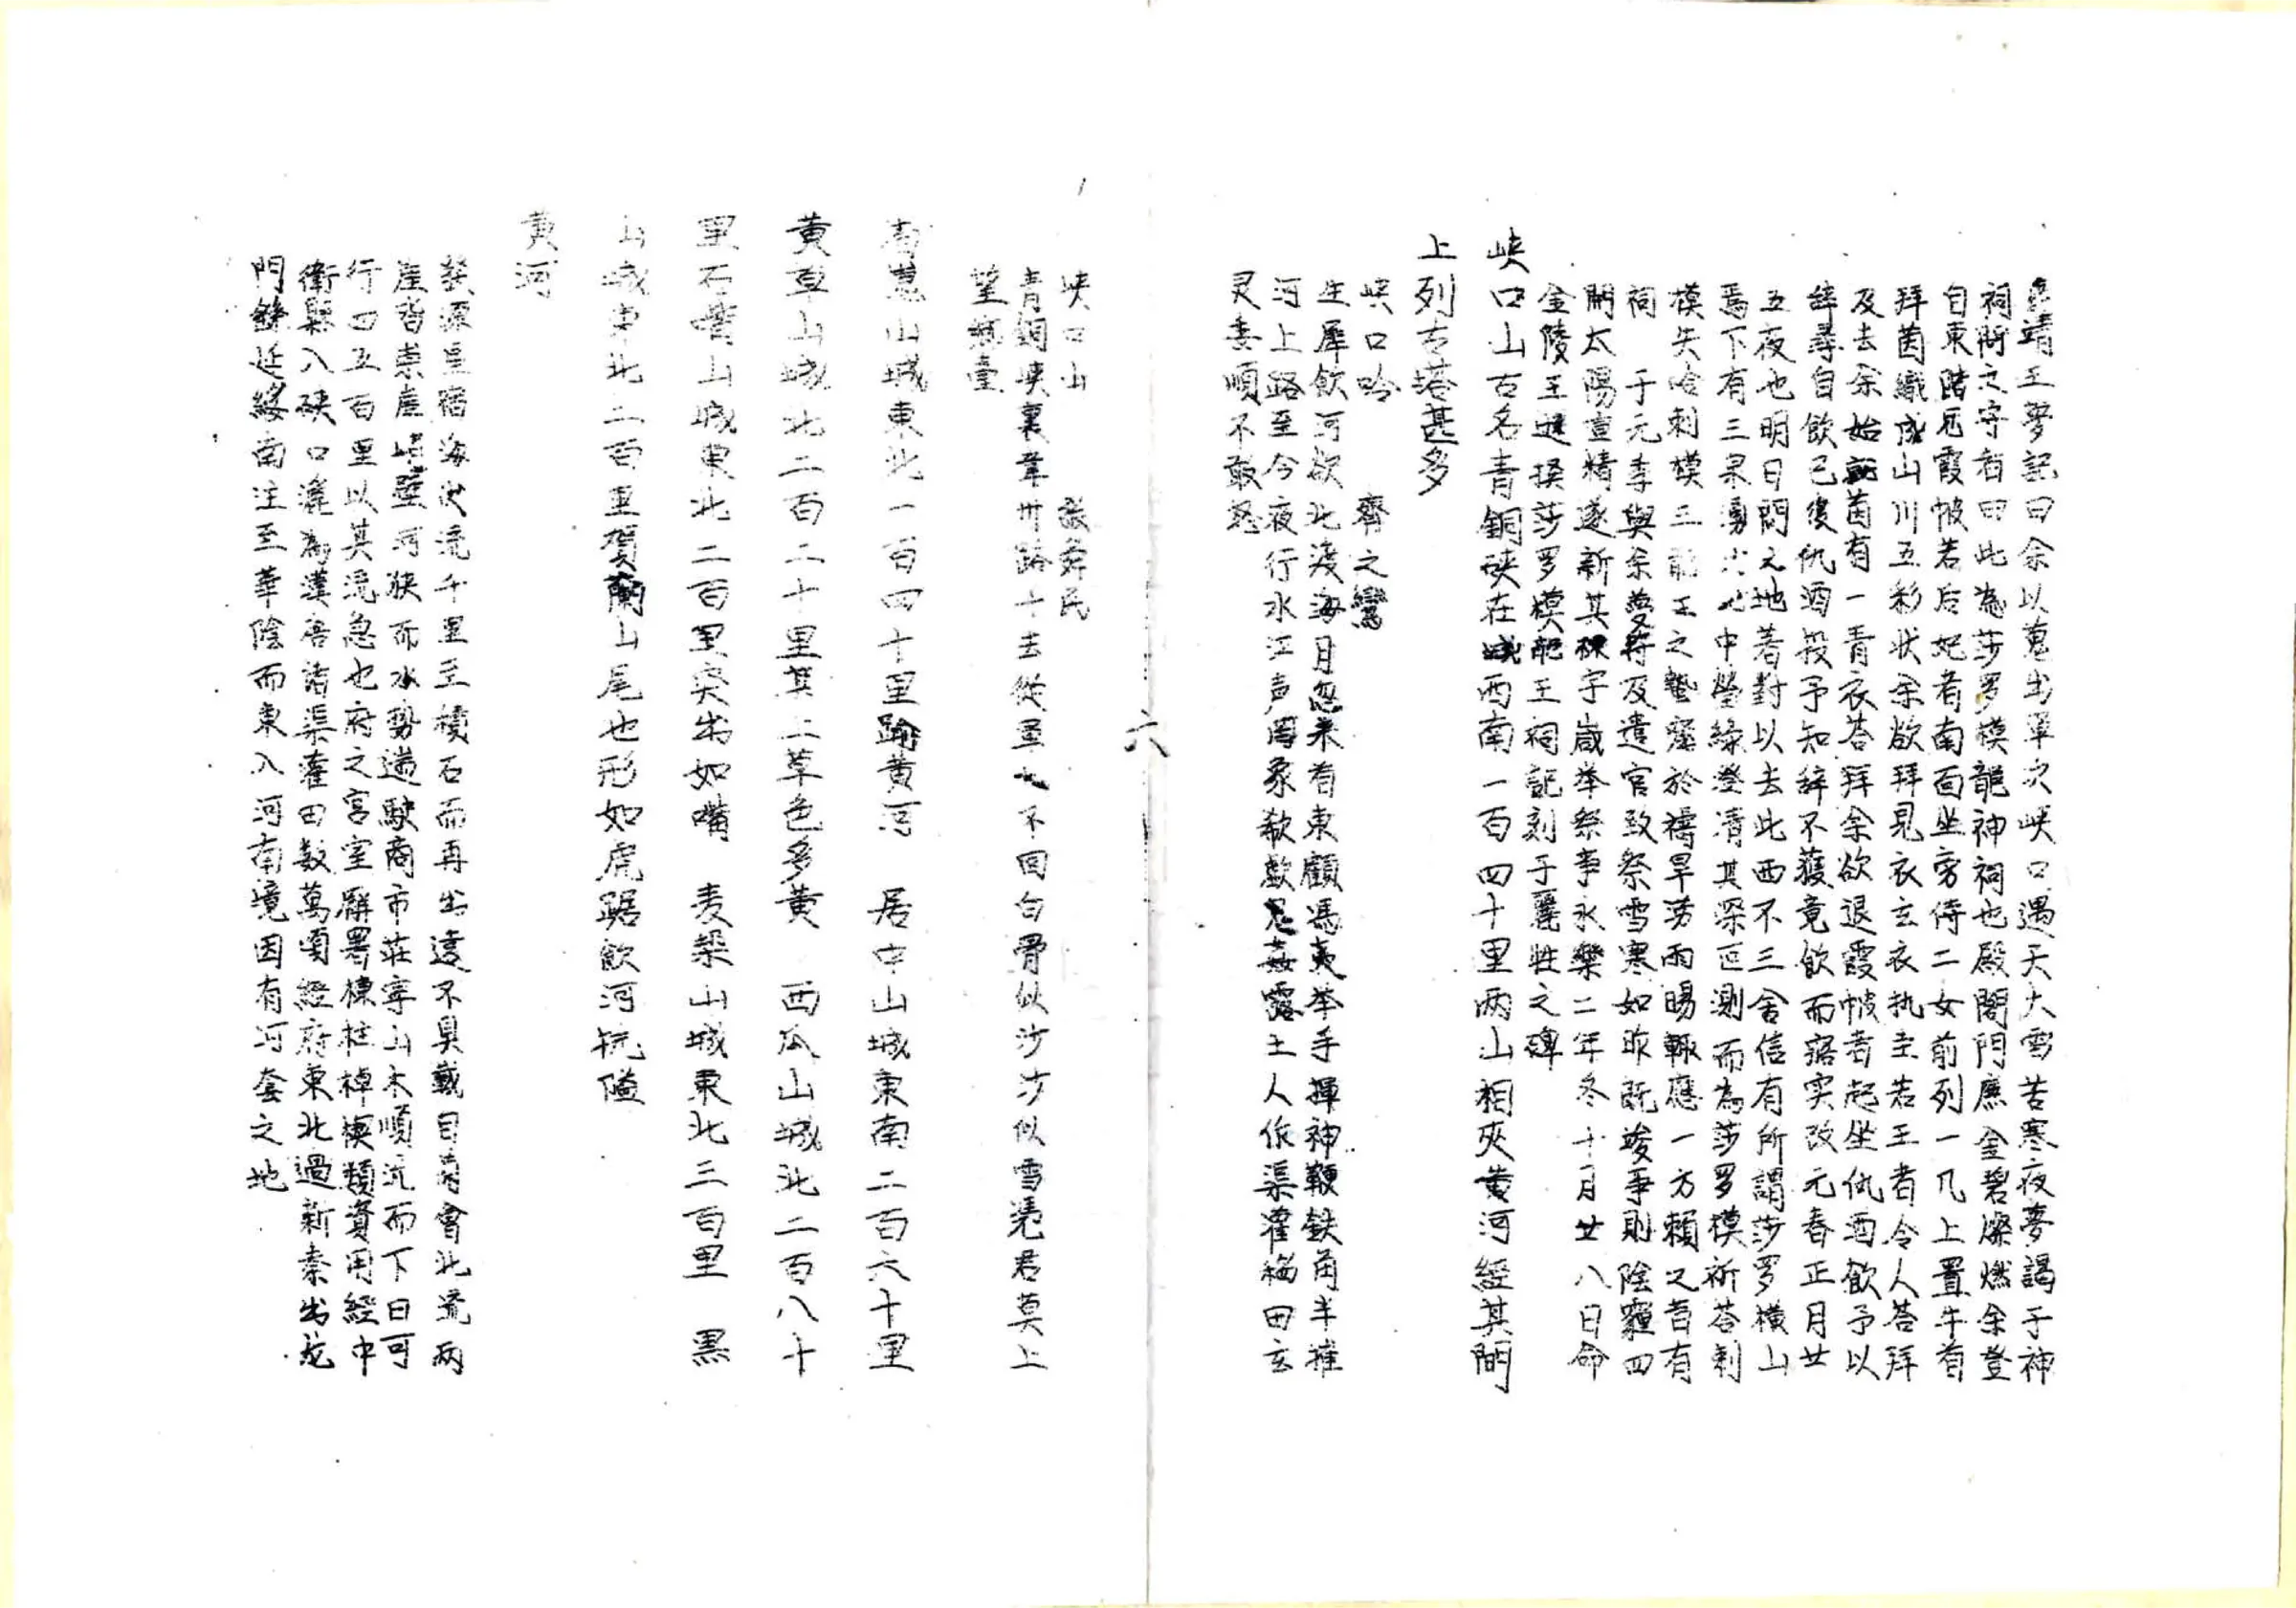 慶靖王夢記曰余以蒐出軍次峽口遇天大雪苦寒夜夢謁于神
祠問之守者曰此為莎罗模龍神祠也殿閣門廡金碧燦燃余登
自東階見霞帔若后妃者南面坐旁侍二女前列一几上置牛首
拜茵織成山川五彩状余欲拜見衣玄衣执圭若王者令人荅拜
及去余始就茵有一青衣荅拜余欲退霞帔者起坐仇酒飲予以
辞尋自飲已復仇酒投予知辞不獲竟飲而寤实改元春正月廿
五夜也明日問之地著對以去此西不三舍信有所謂莎罗橫山
焉下有三泉湧出地中瑩綠澄清其深叵測而為莎罗模祈荅剌
模失哈刺模三龍王之蟄窟於禱旱澇雨暘輒應一方賴之昔有
祠 于元季與余夢符及遣官致祭雪寒如昨既竣事則陰霾四
開太陽宣精遂新其祼宇歲举祭事永樂二年冬十月廿八日命
金陵王遜撰莎罗模龍王祠記刻于麗牲之碑
峽口山古名青銅峡在城西南一百四十里两山相夾黄河經其間
上列古塔甚多
峽口吟 齊之鸞
生犀飲河欲北渡海月忽来首東顧馮夷举手揮神鞭铁角半摧
河上路至今夜行水江声罔象欷歔鬼姦露土人作渠灌稻田玄
灵委順不敢怒
六
峡口山 張舜民
青銅峡裏韋州路十去從軍九不回白骨似沙沙似雪憑君莫上
望鄉臺
青葱山城東北一百四十里踰黄河 居中山城東南二百六十里
黄草山城北二百二十里其上草色多黄 西瓜山城北二百八十
里石嘴山城東北二百里突出如嘴 麦桬山城東北三百里 黑
山城東北二百里賀蘭山尾也形如虎踞飲河扼隘
黄河
發源星宿海伏流千里至積石而再出遠不具載自南會北流两
崖皆崇崖峭壁河狹而水勢湍駛商市莊宰山木順流而下日可
行四五百里以其流急也府之宫室廨署棟柱棹楔類資用經中
衛縣入硤口灕為漢唐諸渠灌田数萬頃經府東北過新秦出龙
門餘延綏南注至華陰而東入河南境因有河套之地